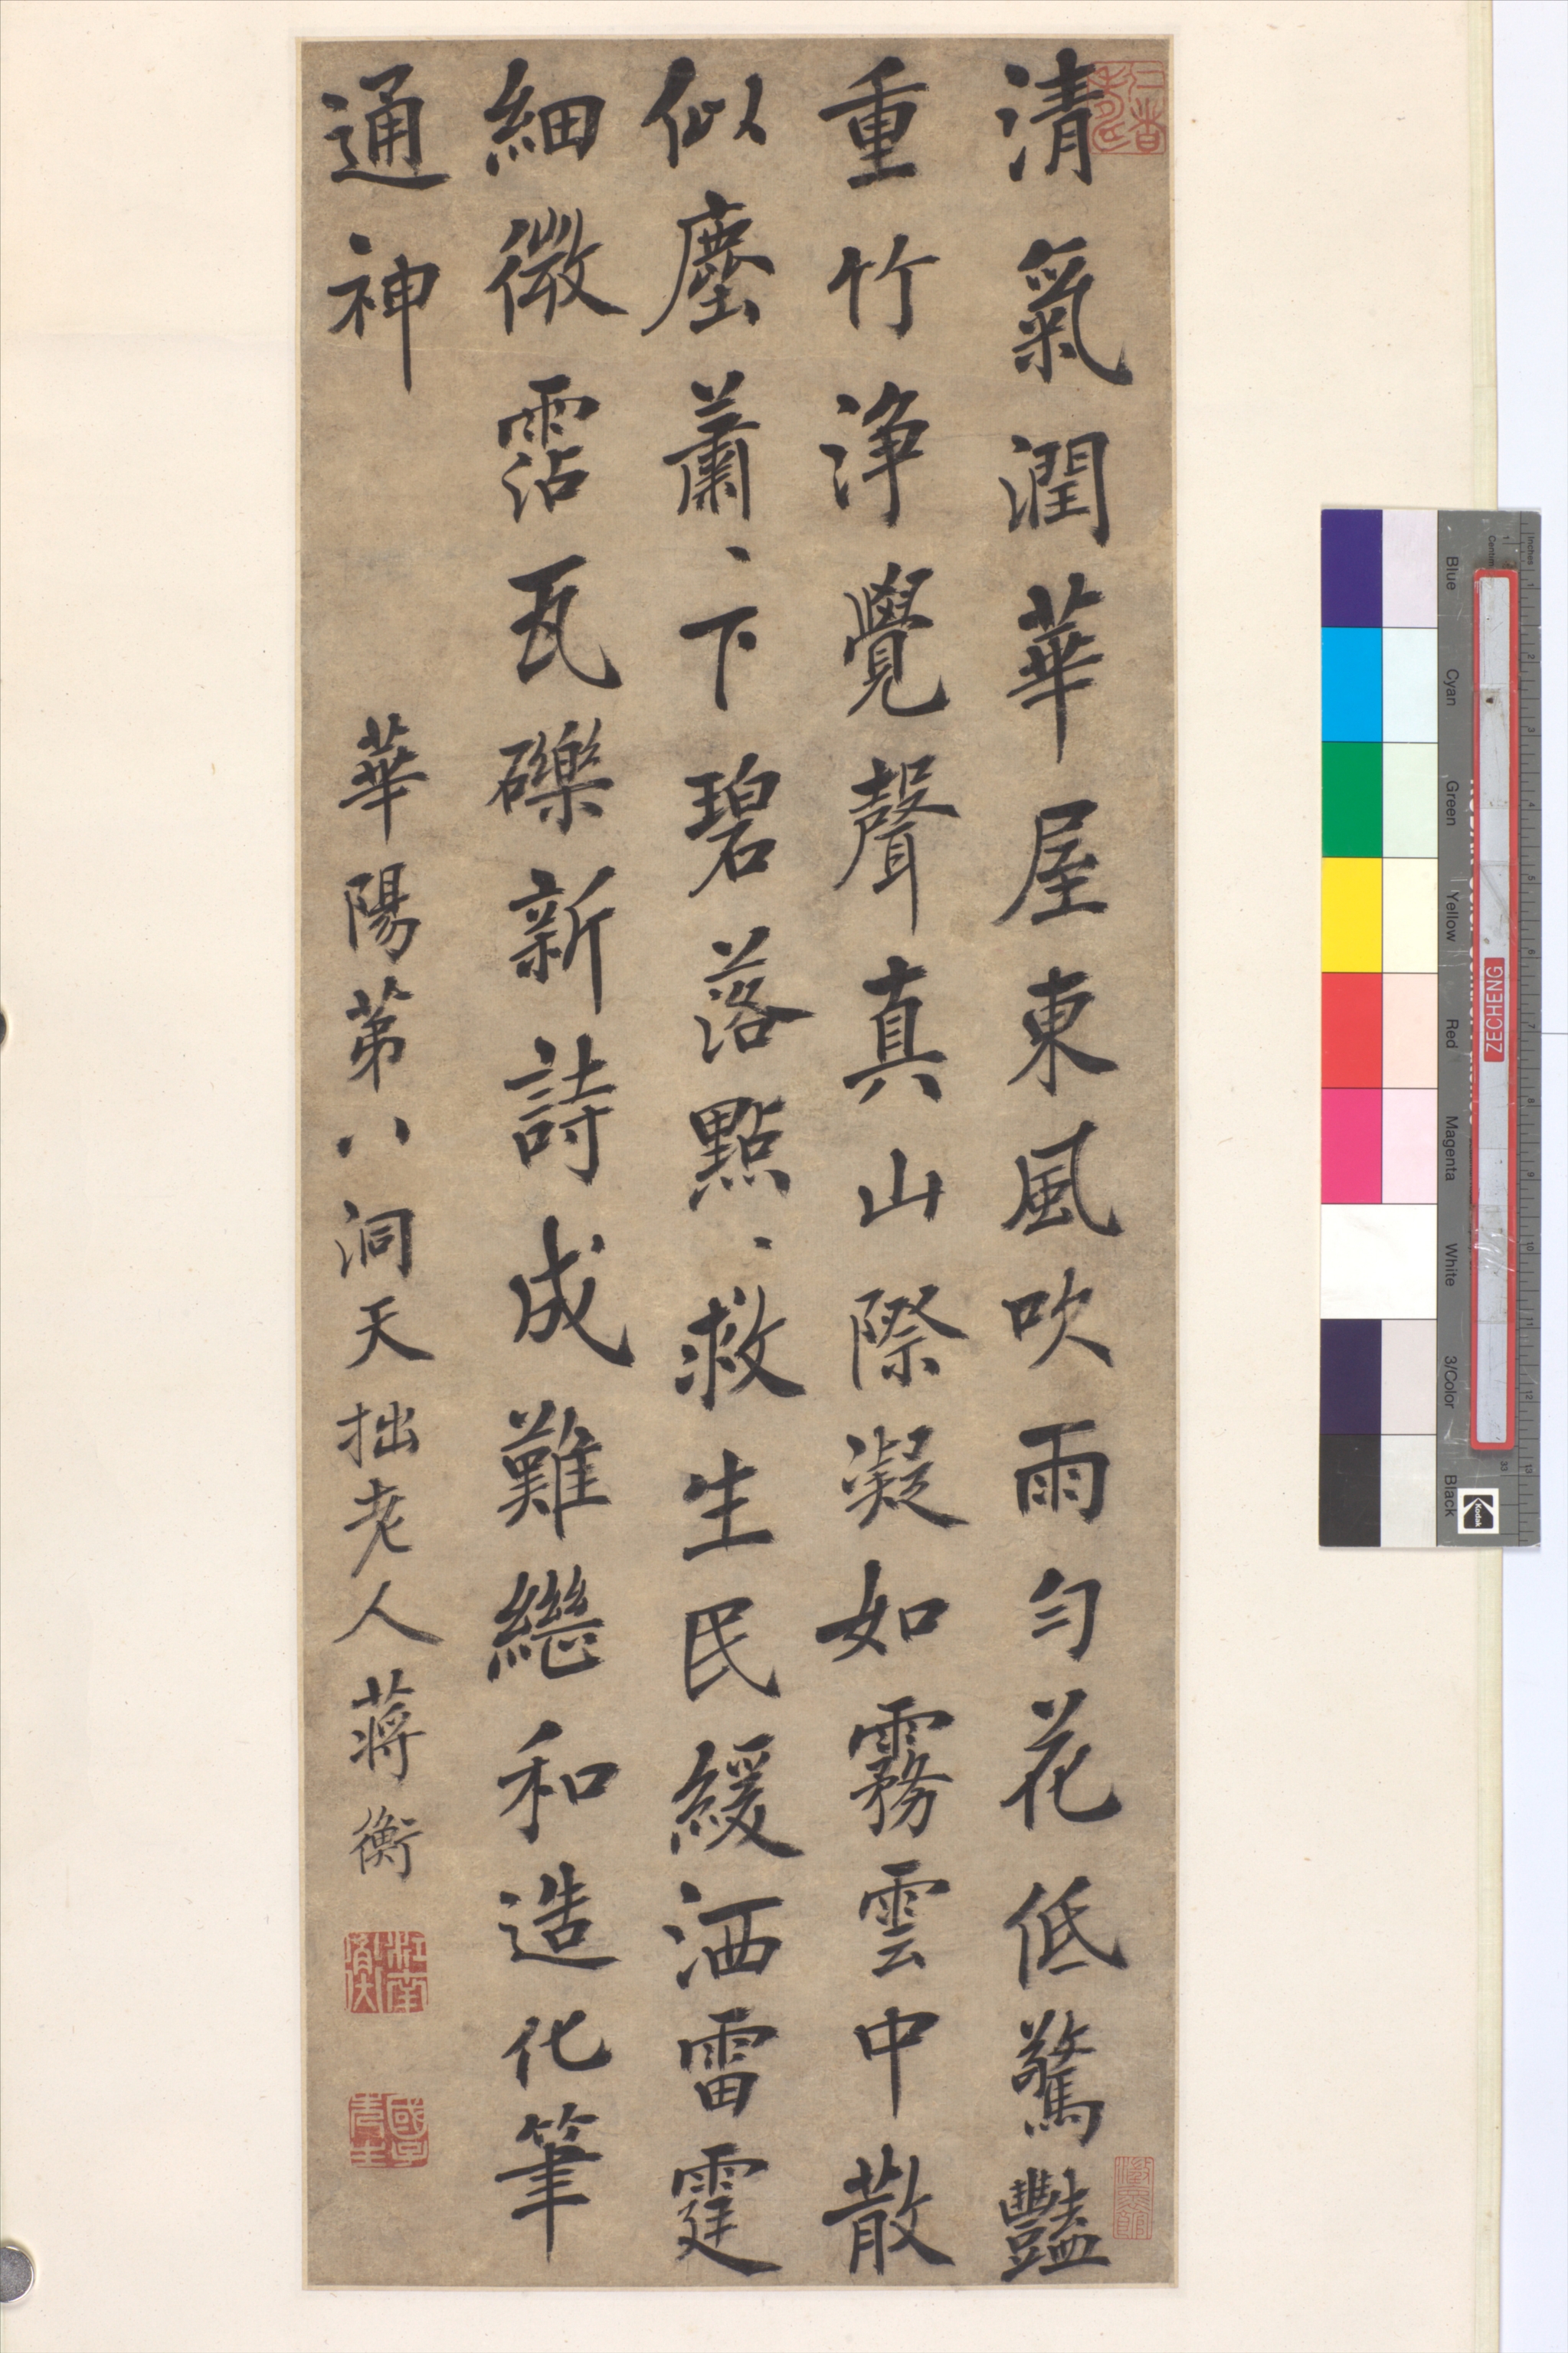 清氣潤華屋東風吹雨勻花低驚豔
重竹淨覺聲真山際凝如霧雲中散
似塵蕭、下碧落點、救生民緩洒雷霆
細微霑瓦礫新詩成難繼和造化筆
通神
華陽第八洞天拙老人蔣衡
仁者壽
江南蔣衡
國子先生
Inches
Centim
Blue
Cyan
Green
Yellow
Red
Magenta
White
3/Color
Black
ZECHENG
Kodak